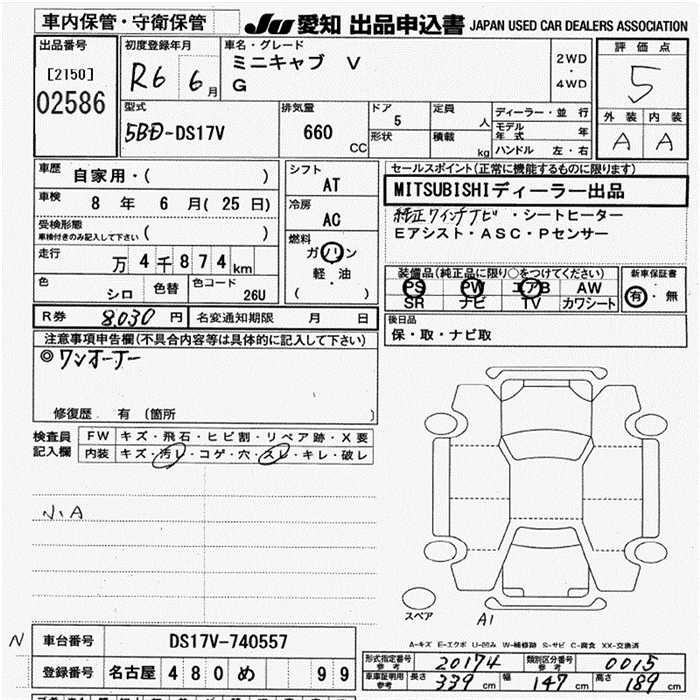 車内保管・守衛保管
JU 愛知 出品申込書 JAPAN USED CAR DEALERS ASSOCIATION
出品番号
[2150]
02586
初度登録年月
R6 6月
車名・グレード
ミニキャブ V
G
2WD
・
4WD
評価点
5
外装 内装
A A
型式
5BD-DS17V
排気量
660
CC
ドア
5
形状
定員
人
積載
kg
ディーラー・並行
モデル年式 年
ハンドル 左・右
車歴
自家用・( )
車検 8年 6月(25日)
受検形態
車検付きのみ記入して下さい ( )
走行
万4千874km
色
シロ
色替
色コード
26U
シフト
AT
冷房
AC
燃料
ガソリン
軽・油
( )
セールスポイント(正常に機能するものに限ります)
MITSUBISHIディーラー出品
純正7インチナビ・シートヒーター
Eアシスト・ASC・Pセンサー
装備品(純正品に限り○をつけてください)
PS PW エアB AW
SR ナビ TV カワシート
新車保証書
有・無
R券 8,030円 名変通知期限 月 日
後日品
保・取・ナビ取
注意事項申告欄(不具合内容等は具体的に記入して下さい)
◎ワンオーナー
修復歴 有 〔箇所 〕
検査員
記入欄
FW キズ・飛石・ヒビ割・リペア跡・X要
内装 キズ・汚レ・コゲ・穴・スレ・キレ・破レ
小A
スペア
A1
A-キズ E-エクボ U-凹み W-補修跡 S-サビ C-腐食 XX-交換済
N
車台番号 DS17V-740557
登録番号 名古屋 480 め 99
形式指定番号
参考
20174
類別区分番号
参考
0015
車庫証明用
参考
長さ 339cm 幅 147cm 高さ 189cm